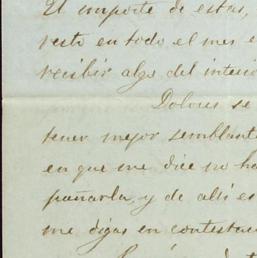 El importe de estas,
resto en todo el mes
recibir algo del interi
Dolores se
tener mejor semblant
en que me dice no ha
pañarla, y de alli es
me digas en contestac